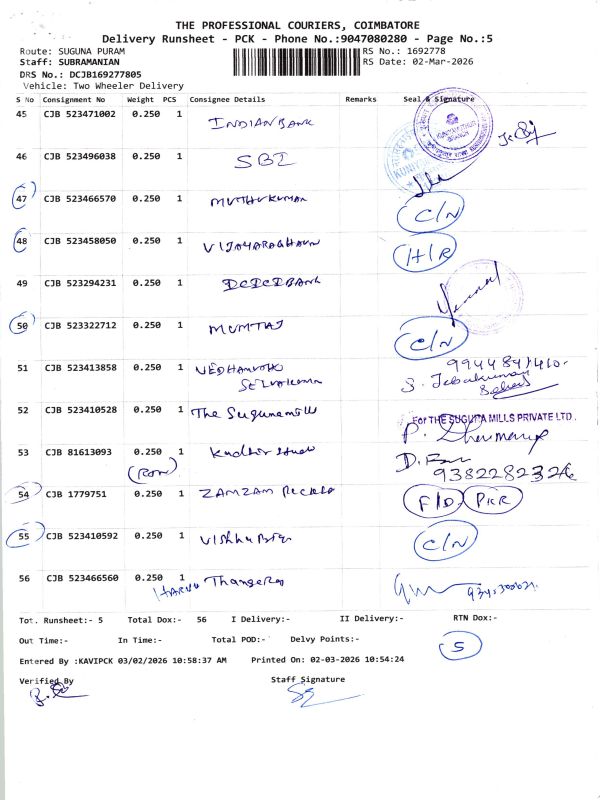 THE PROFESSIONAL COURIERS, COIMBATORE
Delivery Runsheet - PCK - Phone No.:9047080280 - Page No.:5
Route: SUGUNA PURAM RS No.: 1692778
Staff: SUBRAMANIAN RS Date: 02-Mar-2026
DRS No.: DCJB169277805
Vehicle: Two Wheeler Delivery
S No Consignment No Weight PCS Consignee Details Remarks Seal & Signature
45 CJB 523471002 0.250 1 INDIAN BANK
46 CJB 523496038 0.250 1 SBI
47 CJB 523466570 0.250 1 MUTHUKUMAR C/N
48 CJB 523458050 0.250 1 VIJAYARAGHAVN H/R
49 CJB 523294231 0.250 1 ICICI BANK
50 CJB 523322712 0.250 1 MUMTAJ C/N
51 CJB 523413858 0.250 1
52 CJB 523410528 0.250 1 The Sugunamill For THE SUGUNA MILLS PRIVATE LTD.
53 CJB 81613093 0.250 1 9382282326
54 CJB 1779751 0.250 1 ZAMZAM F/D
55 CJB 523410592 0.250 1 C/N
56 CJB 523466560 0.250 1
Tot. Runsheet:- 5 Total Dox:- 56 I Delivery:- II Delivery:- RTN Dox:-
Out Time:- In Time:- Total POD:- Delvy Points:- 5
Entered By :KAVIPCK 03/02/2026 10:58:37 AM Printed On: 02-03-2026 10:54:24
Verified By Staff Signature